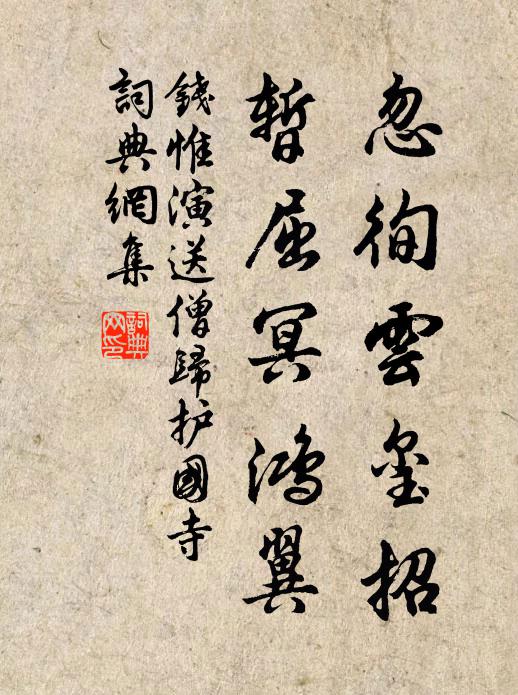 忽徇雲壑招
暫屈冥鴻翼
錢惟演送僧歸护國寺
詞典網集
詞典网印